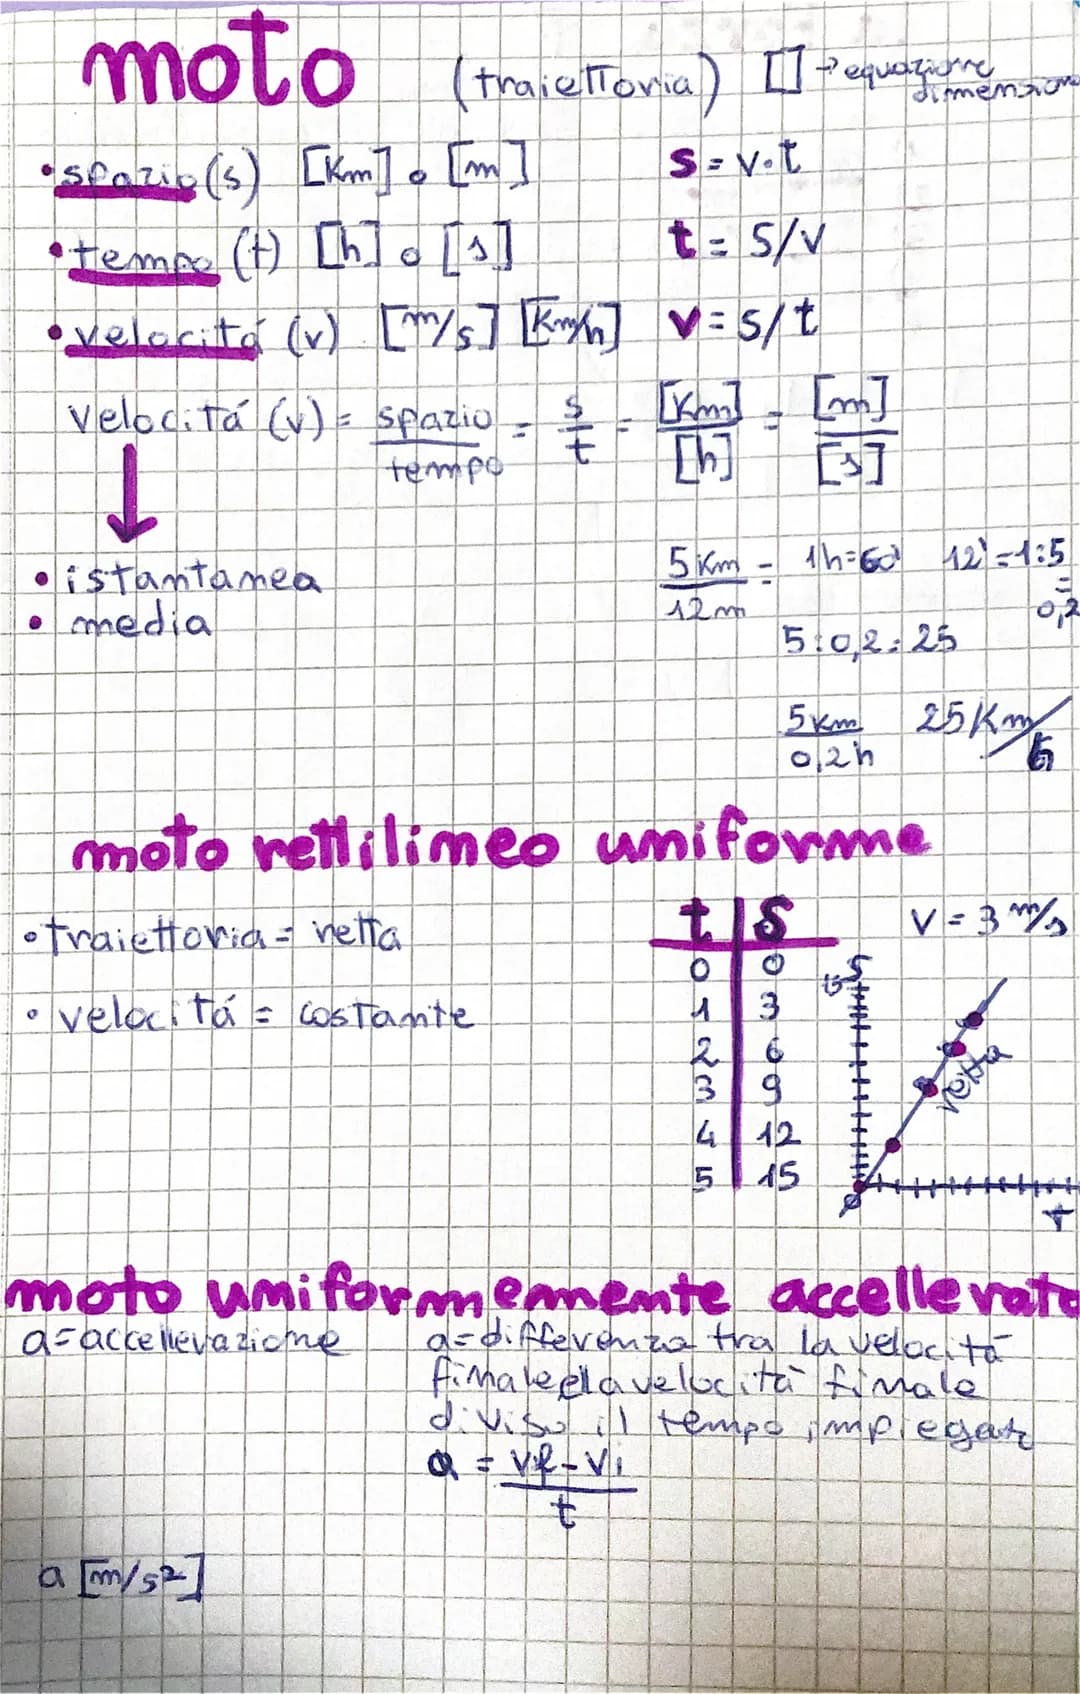 moto (traiettoria) [] → equazione dimension
• spazio (s) [Km] o [m] s = v·t
• tempo (t) [h] o [s] t = s/v
• velocitá (v) [m/s] [Km/h] v = s/t
velocitá (v) = spazio/tempo = s/t = [Km]/[h] = [m]/[s]
↓
• istantanea
• media
5 Km/12 m = 1h=60' 12'=1:5 = 0,2
5:0,2=25
5 Km/0,2 h 25 Km/h
moto rettilineo uniforme
• traiettoria = retta
• velocitá = costante
t | s V = 3 m/s
0 | 0
1 | 3
2 | 6
3 | 9
4 | 12
5 | 15
15 S
retta
0
t
moto uniformemennente accellerato
a = accellerazione
a = differenza tra la velocitá
finale e la velocitá finale
diviso il tempo impiegato
a = vf - vi / t
a [m/s²]